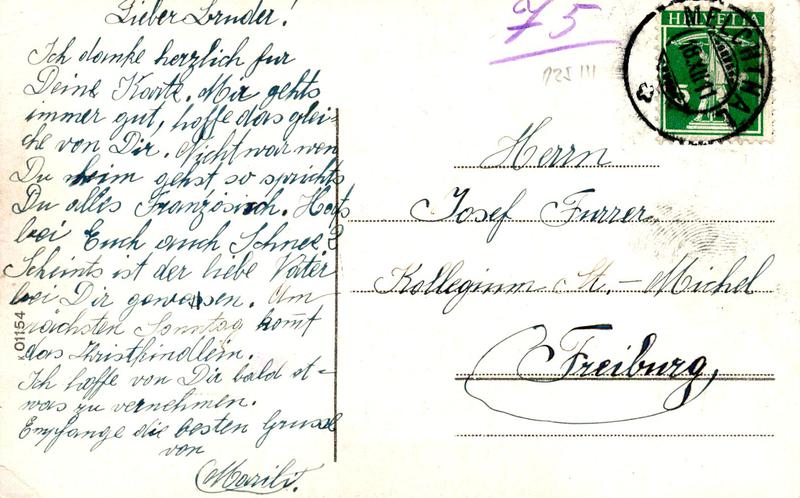 Lieber Bruder!
Ich danke herzlich für
Deine Karte. Mir gehts
immer gut, hoffe das glei-
che von Dir. Nicht war wen
Du heim gehst so sprichts
Du alles Französisch. Hats
bei Euch auch Schnee?
Scheints ist der liebe Vater
bei Dir gewessen. Am
nächsten Sonntag komt
das Kristkindlein.
Ich hoffe von Dir bald et-
was zu vernehmen.
Empfange die besten Grüsse
von
Marili.
K 01154
75
HELVETIA
5
MELCHTHAL
Herrn
Josef Furrer
Kollegium St. - Michel
Freiburg